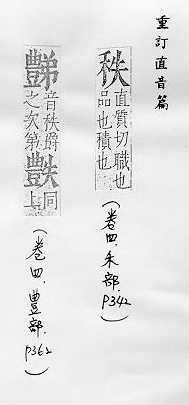 重訂直音篇
秩直質切職也
品也積也
（卷四．禾部．P342）
音秩爵
之次第同上
（卷四．豊部．P362）